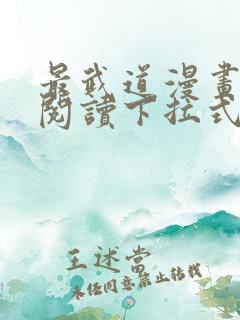 最武道漫畫
閱讀下拉式
王述當
未经同意禁止转载